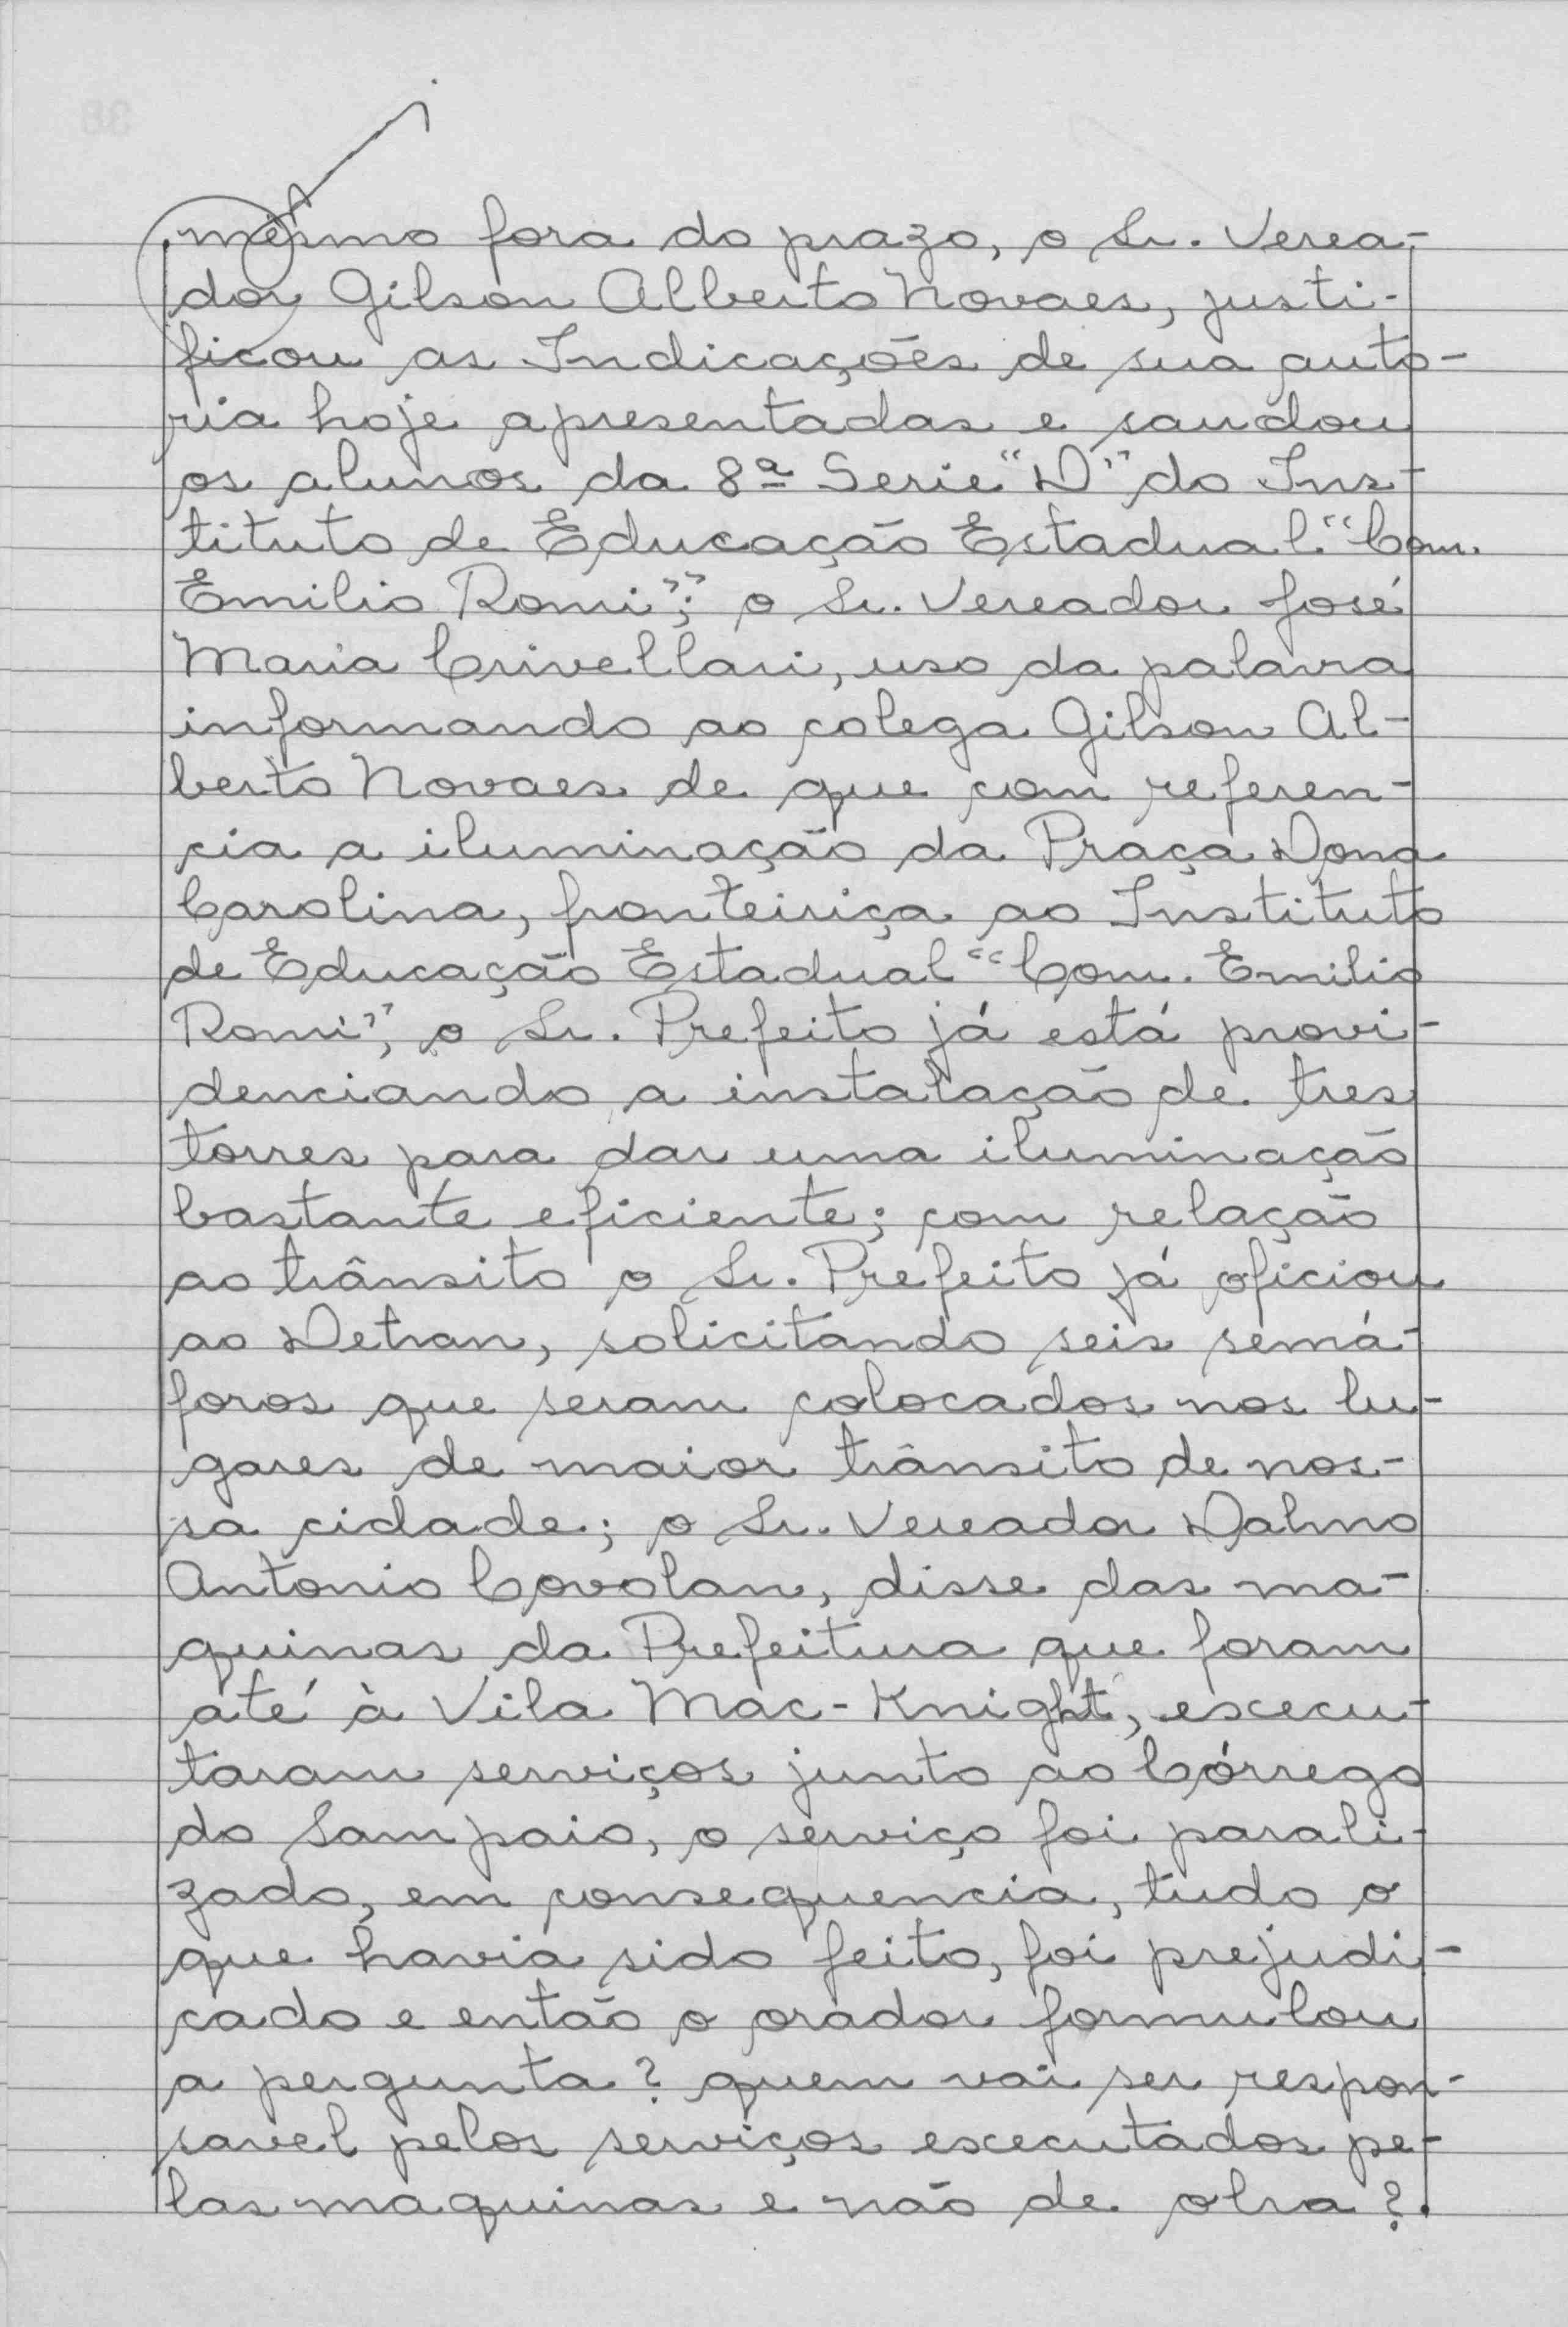 mesmo fora do prazo, o Sr. Verea-
dor Gilson Alberto Novaes, justi-
ficou as Indicações de sua auto-
ria hoje apresentadas e saudou
os alunos da 8ª Serie "D" do Ins-
tituto de Educação Estadual "Com.
Emilio Romi"; o Sr. Vereador José
Maria Crivellari, uso da palavra
informando ao colega Gilson Al-
berto Novaes de que com referen-
cia a iluminação da Praça Dona
Carolina, fronteiriça ao Instituto
de Educação Estadual "Com. Emilio
Romi", o Sr. Prefeito já está provi-
denciando a instalação de tres
torres para dar uma iluminação
bastante eficiente; com relação
ao trânsito o Sr. Prefeito já oficiou
ao Detran, solicitando seis semá-
foros que seram colocados nos lu-
gares de maior trânsito de nos-
sa cidade; o Sr. Vereador Dalmo
Antonio Covolan, disse das ma-
quinas da Prefeitura que foram
até à Vila Mac-Knight, execu-
taram serviços junto ao Córrego
do Sampaio, o serviço foi parali-
zado, em consequencia, tudo o
que havia sido feito, foi prejudi-
cado e então o orador formulou
a pergunta? quem vai ser respon-
savel pelos serviços executados pe-
las maquinas e mão de obra?.